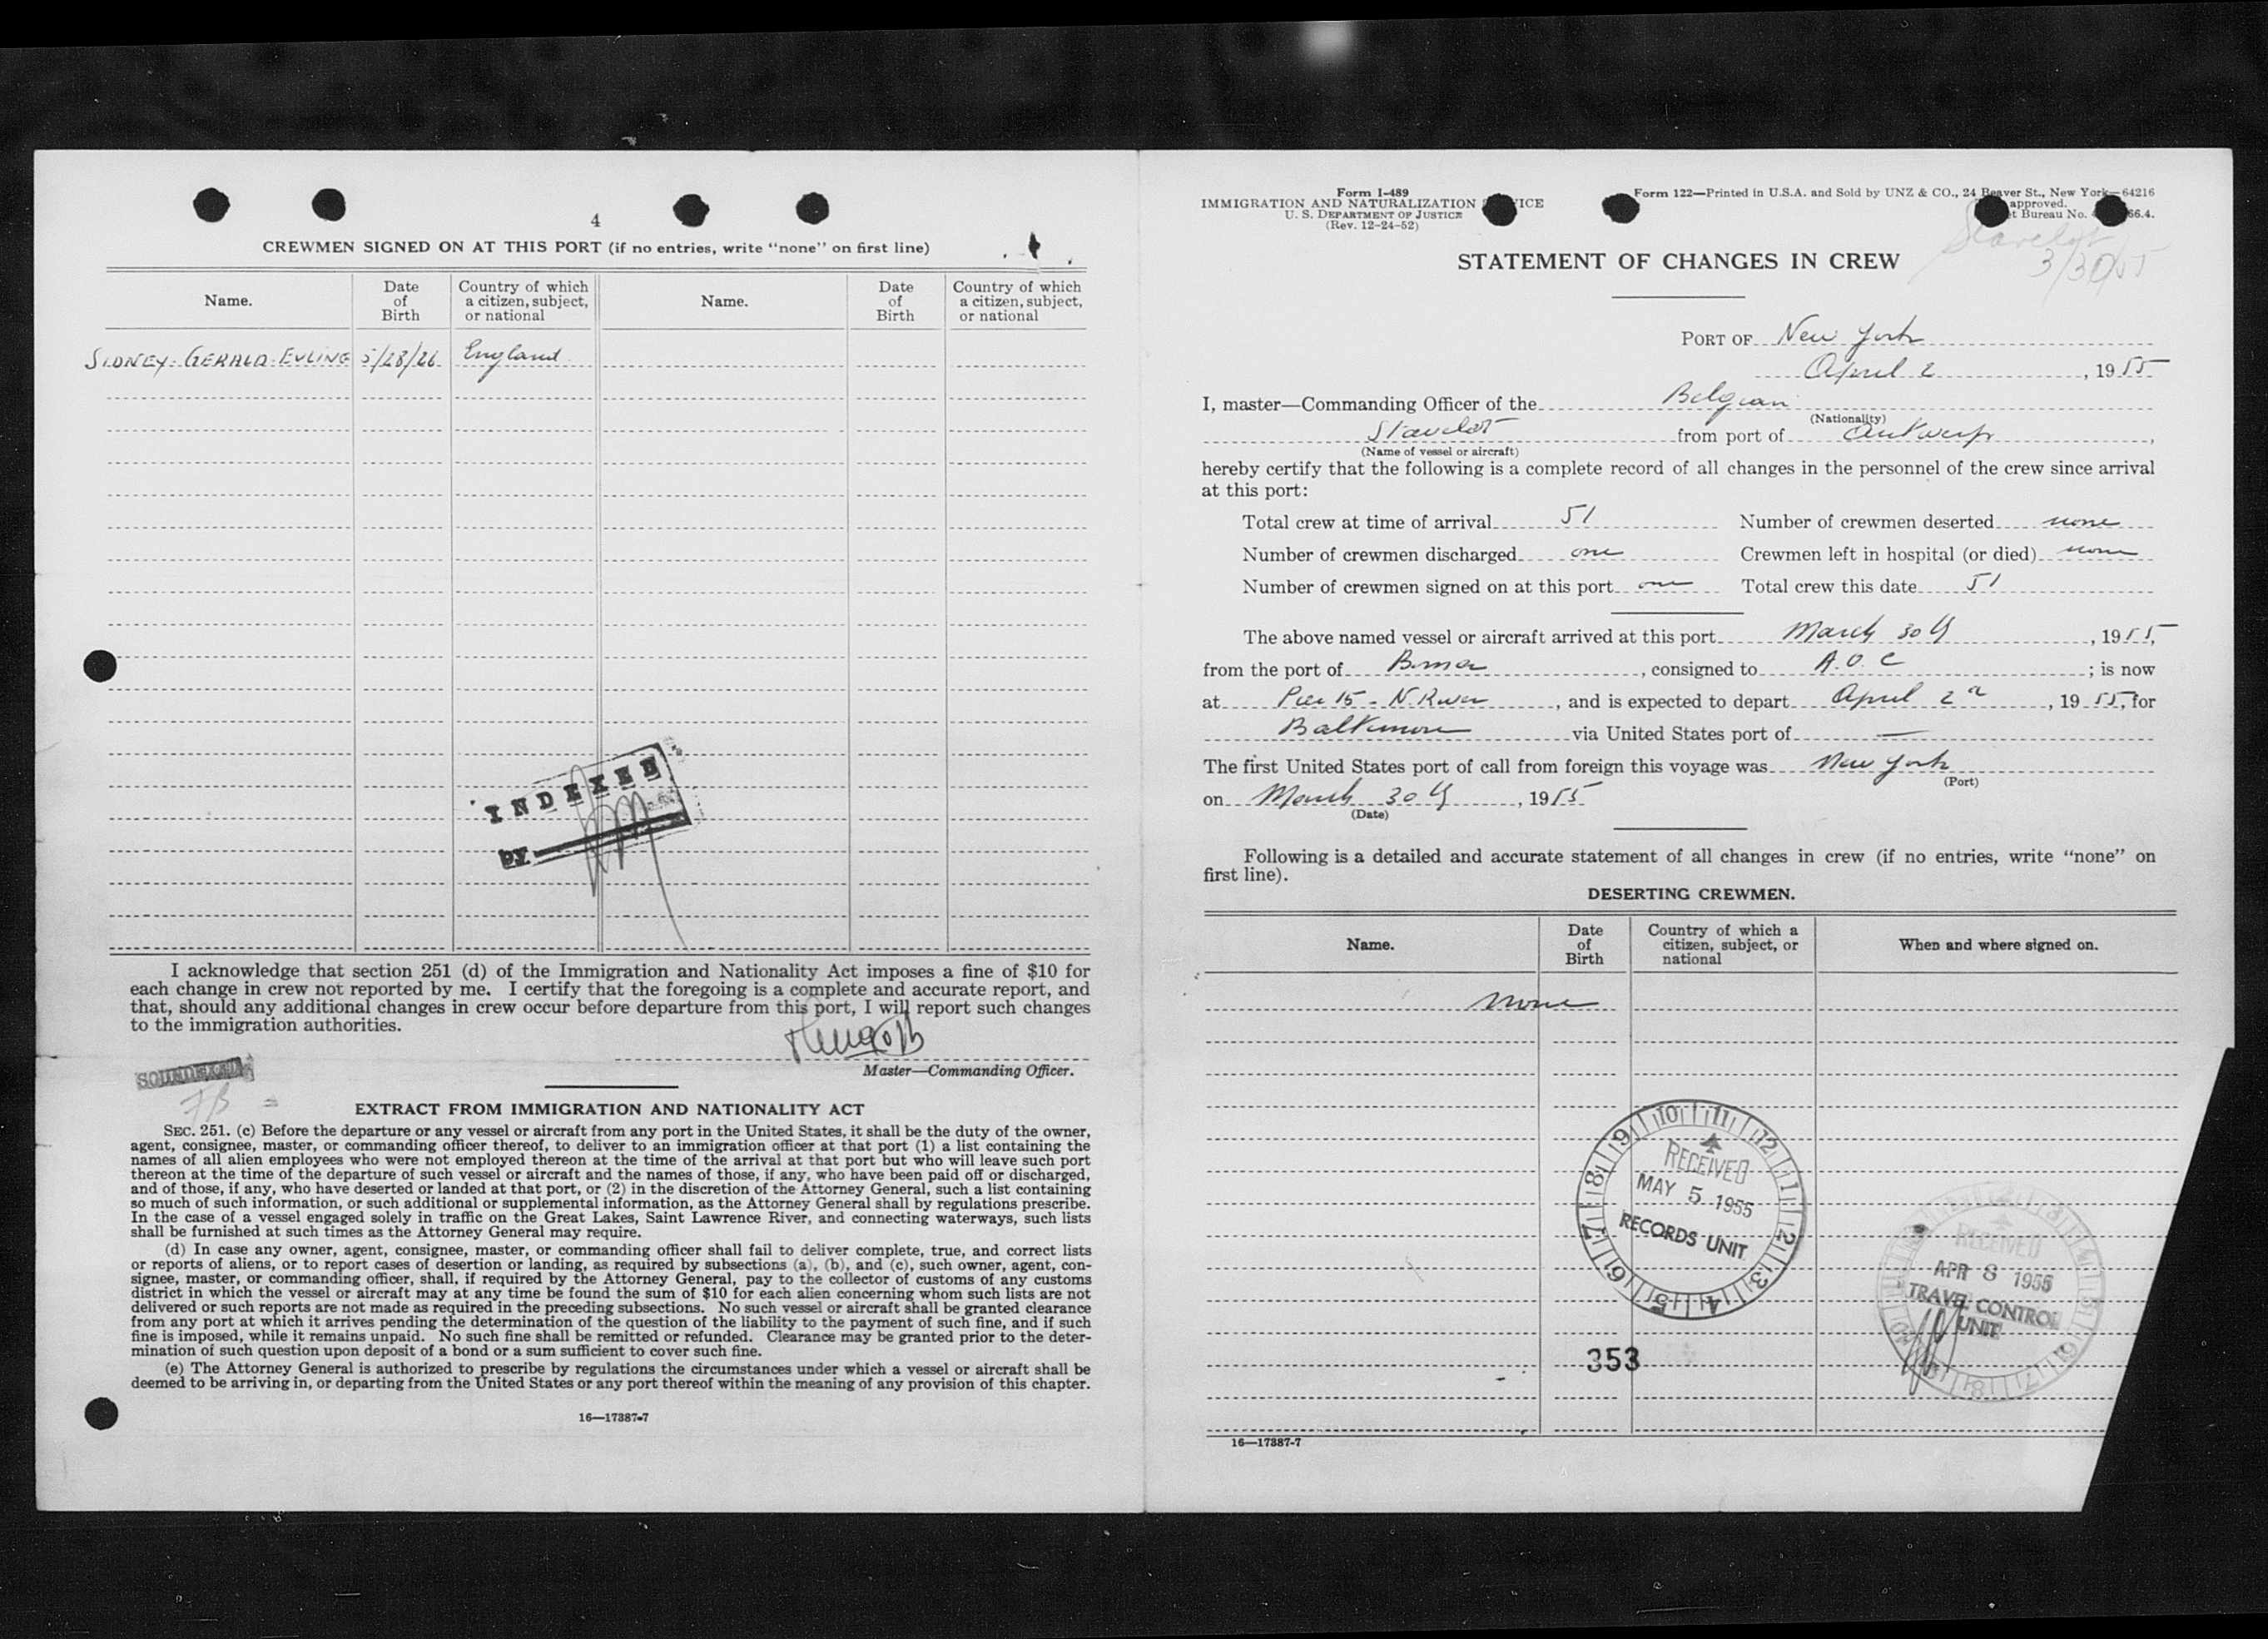 4
CREWMEN SIGNED ON AT THIS PORT (if no entries, write “none” on first line)
Name. Date of Birth Country of which a citizen, subject, or national Name. Date of Birth Country of which a citizen, subject, or national
SIDNEY-GERALD-EVLING 5/28/26 England
INDEXED
by
I acknowledge that section 251 (d) of the Immigration and Nationality Act imposes a fine of $10 for
each change in crew not reported by me. I certify that the foregoing is a complete and accurate report, and
that, should any additional changes in crew occur before departure from this port, I will report such changes
to the immigration authorities.
Master—Commanding Officer.
SOUNDEXED
EXTRACT FROM IMMIGRATION AND NATIONALITY ACT
SEC. 251. (c) Before the departure or any vessel or aircraft from any port in the United States, it shall be the duty of the owner,
agent, consignee, master, or commanding officer thereof, to deliver to an immigration officer at that port (1) a list containing the
names of all alien employees who were not employed thereon at the time of the arrival at that port but who will leave such port
thereon at the time of the departure of such vessel or aircraft and the names of those, if any, who have been paid off or discharged,
and of those, if any, who have deserted or landed at that port, or (2) in the discretion of the Attorney General, such a list containing
so much of such information, or such additional or supplemental information, as the Attorney General shall by regulations prescribe.
In the case of a vessel engaged solely in traffic on the Great Lakes, Saint Lawrence River, and connecting waterways, such lists
shall be furnished at such times as the Attorney General may require.
(d) In case any owner, agent, consignee, master, or commanding officer shall fail to deliver complete, true, and correct lists
or reports of aliens, or to report cases of desertion or landing, as required by subsections (a), (b), and (c), such owner, agent, con-
signee, master, or commanding officer, shall, if required by the Attorney General, pay to the collector of customs of any customs
district in which the vessel or aircraft may at any time be found the sum of $10 for each alien concerning whom such lists are not
delivered or such reports are not made as required in the preceding subsections. No such vessel or aircraft shall be granted clearance
from any port at which it arrives pending the determination of the question of the liability to the payment of such fine, and if such
fine is imposed, while it remains unpaid. No such fine shall be remitted or refunded. Clearance may be granted prior to the deter-
mination of such question upon deposit of a bond or a sum sufficient to cover such fine.
(e) The Attorney General is authorized to prescribe by regulations the circumstances under which a vessel or aircraft shall be
deemed to be arriving in, or departing from the United States or any port thereof within the meaning of any provision of this chapter.
16—17387-7
Form I-489
IMMIGRATION AND NATURALIZATION
U. S. DEPARTMENT OF JUSTICE
(Rev. 12-24-52)
Form 122—Printed in U.S.A. and Sold by UNZ & CO., 24 Beaver St., New York—64216
approved.
Bureau No. 66.4.
Stavelot
3/30/55
STATEMENT OF CHANGES IN CREW
PORT OF New York
April 2, 1955
I, master—Commanding Officer of the Belgian
(Nationality)
Stavelot from port of Antwerp,
(Name of vessel or aircraft)
hereby certify that the following is a complete record of all changes in the personnel of the crew since arrival
at this port:
Total crew at time of arrival 51 Number of crewmen deserted none
Number of crewmen discharged one Crewmen left in hospital (or died) none
Number of crewmen signed on at this port one Total crew this date 51
The above named vessel or aircraft arrived at this port March 30th, 1955,
from the port of, consigned to A.O.C; is now
at Pier 15 - N. River, and is expected to depart April 2, 1955, for
Baltimore via United States port of —
The first United States port of call from foreign this voyage was New York
(Port)
on March 30th, 1955
(Date)
Following is a detailed and accurate statement of all changes in crew (if no entries, write “none” on
first line).
DESERTING CREWMEN.
Name. Date of Birth Country of which a citizen, subject, or national When and where signed on.
none
RECEIVED
MAY 5 1955
RECORDS UNIT
10 11 12 1 2 3 4 5 6 7 8 9
RECEIVED
APR 8 1955
TRAVEL CONTROL
UNIT
353
16—17387-7